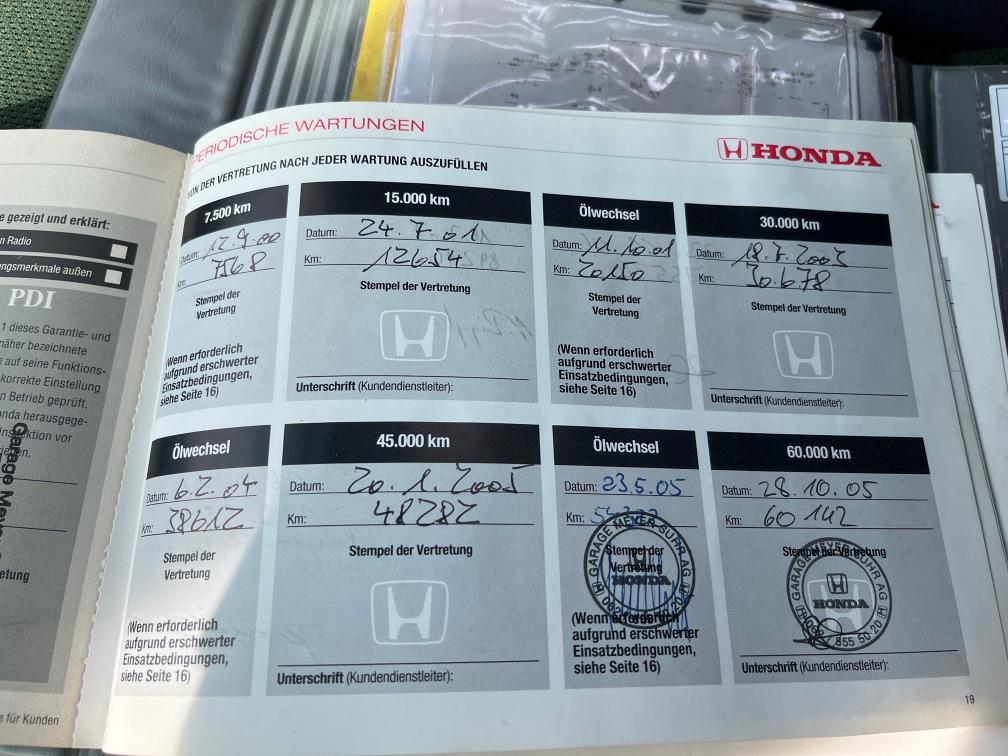 PERIODISCHE WARTUNGEN
HONDA
VON DER VERTRETUNG NACH JEDER WARTUNG AUSZUFÜLLEN
7.500 km
12.9.00
7568
Stempel der
Vertretung
(Wenn erforderlich
aufgrund erschwerter
Einsatzbedingungen,
siehe Seite 16)
15.000 km
Datum: 24.7.01
Km: 12654
Stempel der Vertretung
Unterschrift (Kundendienstleiter):
Ölwechsel
Datum: 11.10.01
Km: 20150
Stempel der
Vertretung
(Wenn erforderlich
aufgrund erschwerter
Einsatzbedingungen,
siehe Seite 16)
30.000 km
Datum:
Km: 30.678
Stempel der Vertretung
Unterschrift (Kundendienstleiter):
Ölwechsel
Datum: 6.2.04
Km: 38612
Stempel der
Vertretung
(Wenn erforderlich
aufgrund erschwerter
Einsatzbedingungen,
siehe Seite 16)
45.000 km
Datum: 20.1.2005
Km: 48282
Stempel der Vertretung
Unterschrift (Kundendienstleiter):
Ölwechsel
Datum: 23.5.05
Km:
Stempel der
Vertretung
GARAGE MEYER SUHR AG
HONDA
(Wenn erforderlich
aufgrund erschwerter
Einsatzbedingungen,
siehe Seite 16)
60.000 km
Datum: 28.10.05
Km: 60142
Stempel der Vertretung
GARAGE MEYER SUHR AG
HONDA
855 50 20
Unterschrift (Kundendienstleiter):
19
e gezeigt und erklärt:
n Radio
ngsmerkmale außen
PDI
1 dieses Garantie- und
näher bezeichnete
e auf seine Funktions-
korrekte Einstellung
n Betrieb geprüft,
onda herausgege-
Inspektion vor
Garage Meyer
etung
e für Kunden